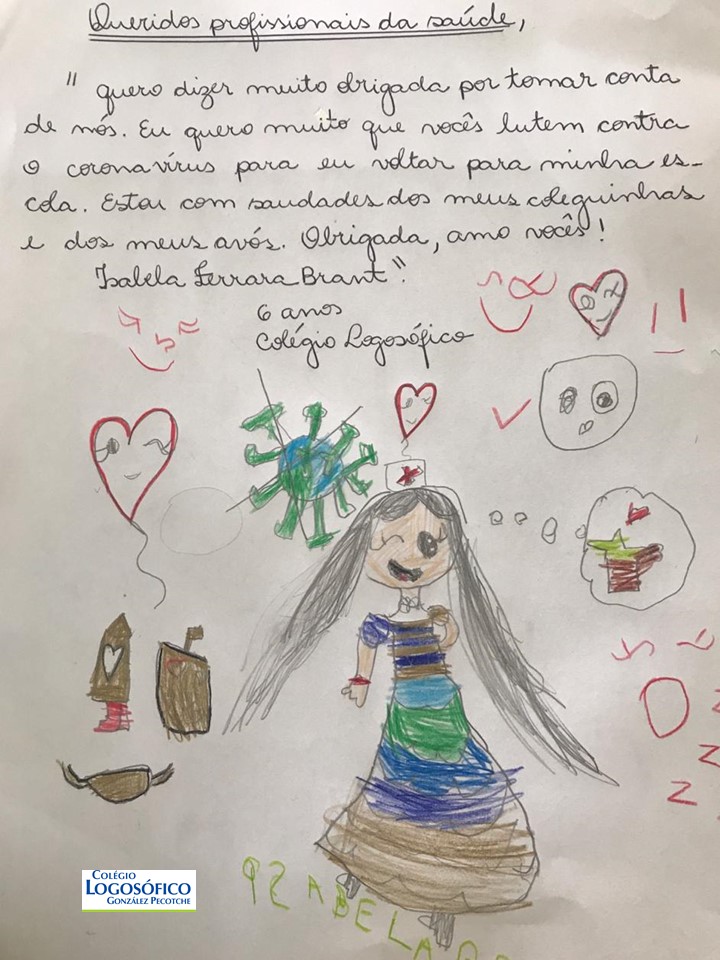 Queridos profissionais da saúde,
" quero dizer muito obrigada por tomar conta
de nós. Eu quero muito que vocês lutem contra
o coronavírus para eu voltar para minha es-
cola. Estou com saudades dos meus coleguinhas
e dos meus avós. Obrigada, amo vocês!
Isabela Ferrara Brant".
6 anos
Colégio Logosófico
Z
Z
COLÉGIO
LOGOSÓFICO
GONZÁLEZ PECOTCHE